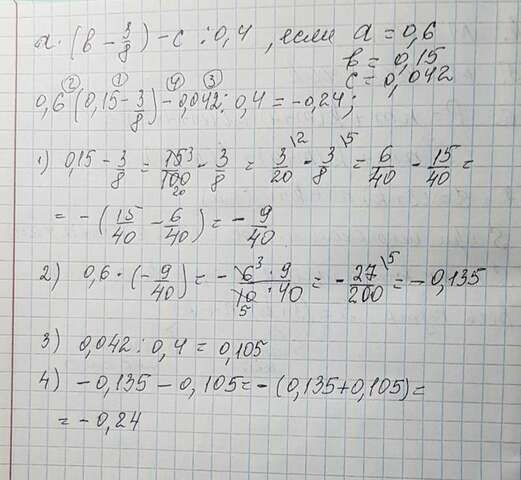 a·(b - 3/8) - c : 0,4 , если a = 0,6
b = 0,15
c = 0,042
② ① ④ ③
0,6 (0,15 - 3/8) - 0,042 : 0,4 = -0,24;
1) 0,15 - 3/8 = 15³/100₂₀ - 3/8 = 3/20 \2 - 3/8 \5 = 6/40 - 15/40 =
= - (15/40 - 6/40) = - 9/40
2) 0,6 · (- 9/40) = - 6³ · 9/10₅ · 40 = - 27/200 \5 = - 0,135
3) 0,042 : 0,4 = 0,105
4) - 0,135 - 0,105 = - (0,135 + 0,105) =
= - 0,24